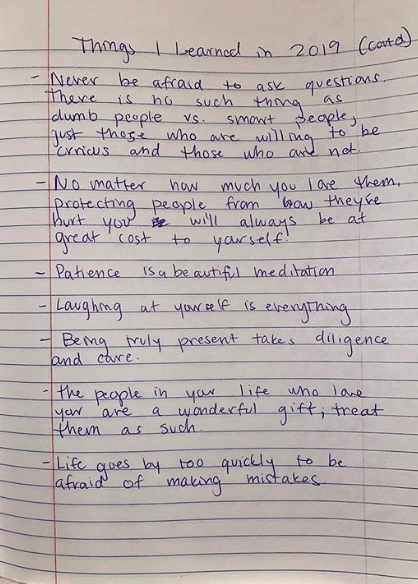 Things I Learned in 2019 (contd)
- Never be afraid to ask questions.
there is no such thing as
dumb people vs. smart people,
just those who are willing to be
curious and those who are not.
- No matter how much you love them,
protecting people from how they've
hurt you will always be at
great cost to yourself.
- Patience is a beautiful meditation
- Laughing at yourself is everything
- Being truly present takes diligence
and care.
- the people in your life who love
you are a wonderful gift; treat
them as such.
- Life goes by too quickly to be
afraid of making mistakes